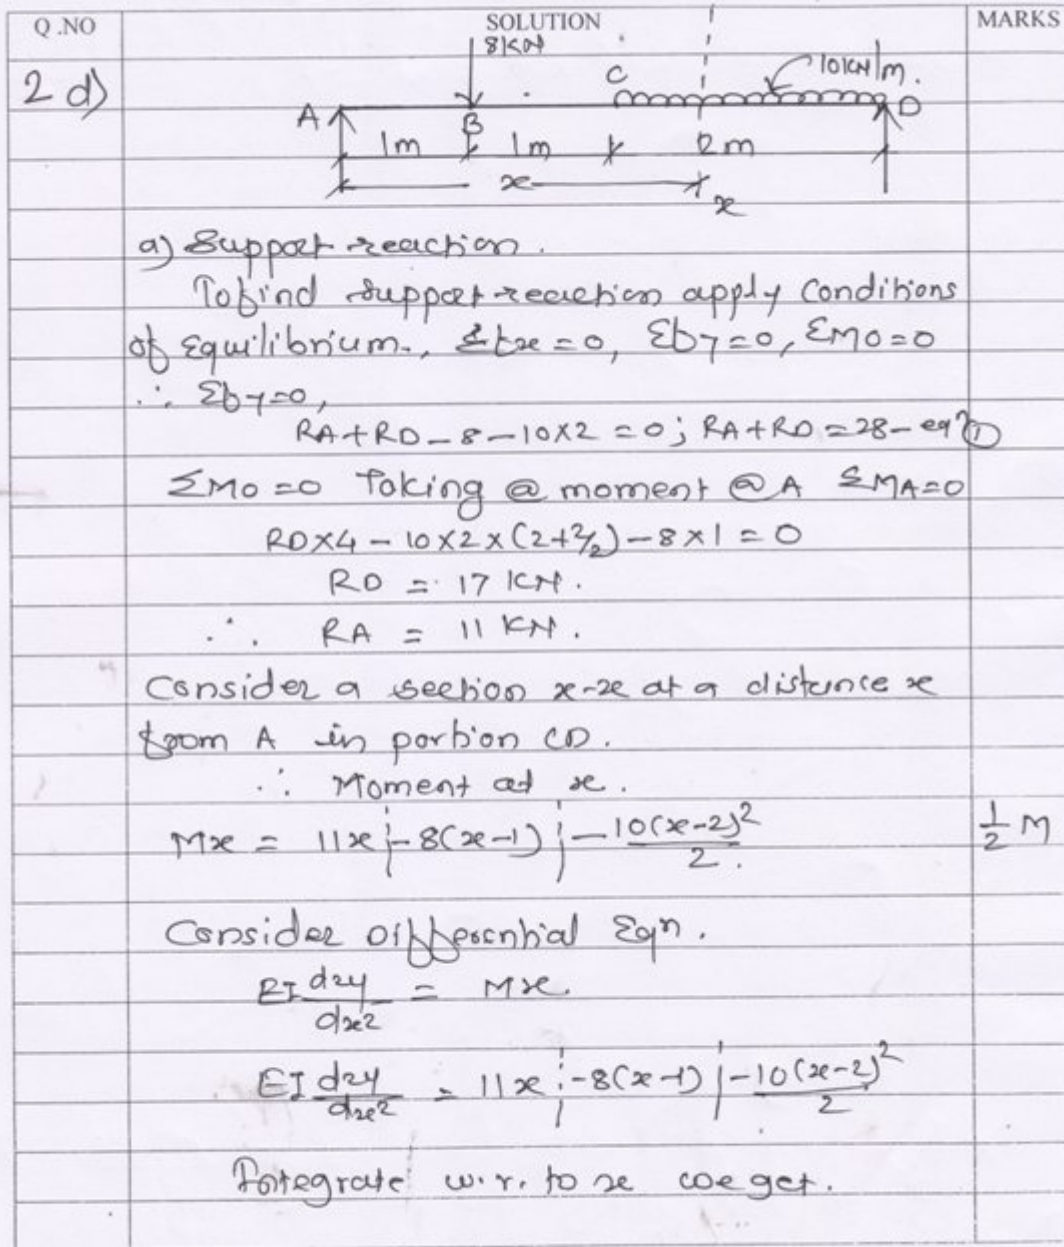 Q.NO SOLUTION MARKS
2 d)
8KN
C 10KN/m.
A B D
1m 1m 2m
x
x
a) Support reaction.
To find support reaction apply Conditions
of Equilibrium., Σfx = 0, Σfy = 0, ΣMo = 0
∴ Σfy = 0,
RA + RD - 8 - 10×2 = 0; RA + RD = 28 - eqⁿ ①
ΣMo = 0 Taking @ moment @ A ΣMA = 0
RD×4 - 10×2×(2+2/2) - 8×1 = 0
RD = 17 KN.
∴ RA = 11 KN.
Consider a section x-x at a distance x
from A in portion CD.
∴ Moment at x.
Mx = 11x ¦ -8(x-1) ¦ - 10(x-2)²/2. 1/2 M
Consider Differential Eqn.
EI d2y/dx2 = Mx.
EI d2y/dx2 = 11x ¦ -8(x-1) ¦ -10(x-2)²/2
Integrate w.r. to x we get.